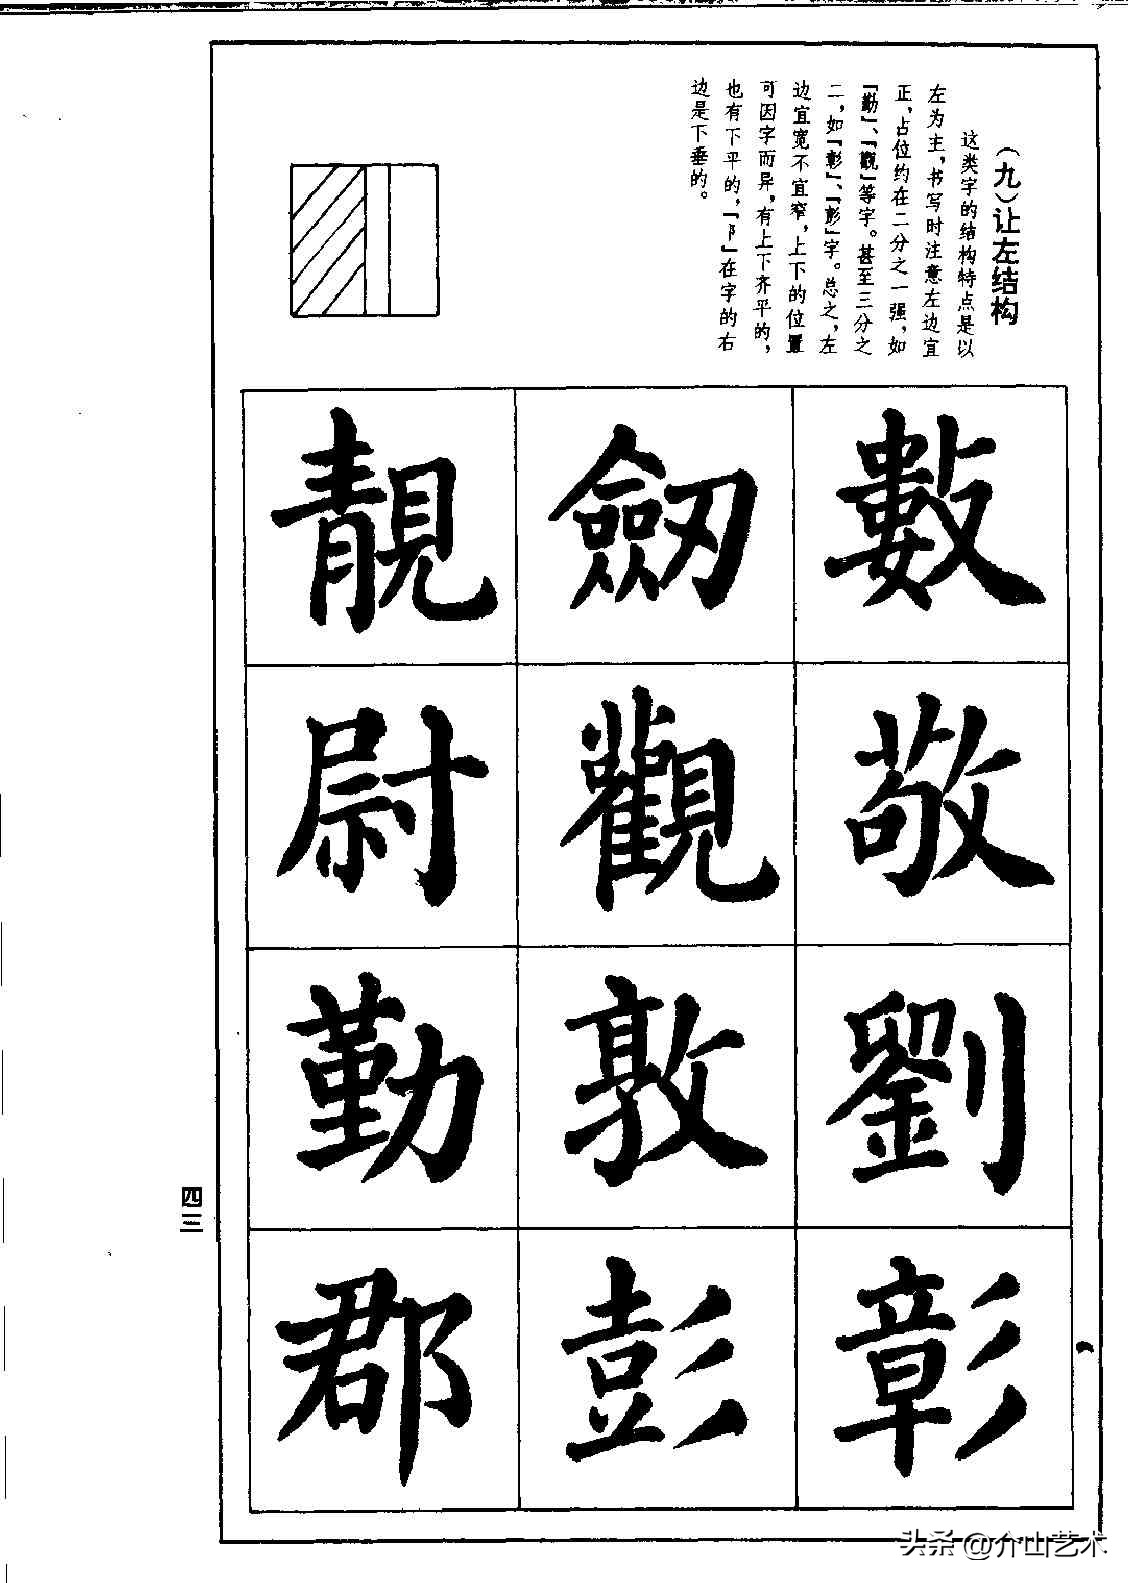 （九）让左结构
这类字的结构特点是以
左为主，书写时注意左边宜
正，占位约在二分之一强，如
「勤」、「觀」等字。甚至三分之
二，如「彰」、「彭」字。总之，左
边宜宽不宜窄，上下的位置
可因字而异，有上下齐平的，
也有下平的，「阝」在字的右
边是下垂的。
數敬劉彰
劒觀敦彭
靚尉勤郡
四三
头条 @介山艺术